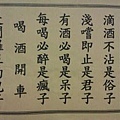 滴酒不沾是俗子
淺嚐即止是君子
有酒必喝是呆子
每喝必醉是瘋子
喝酒開車